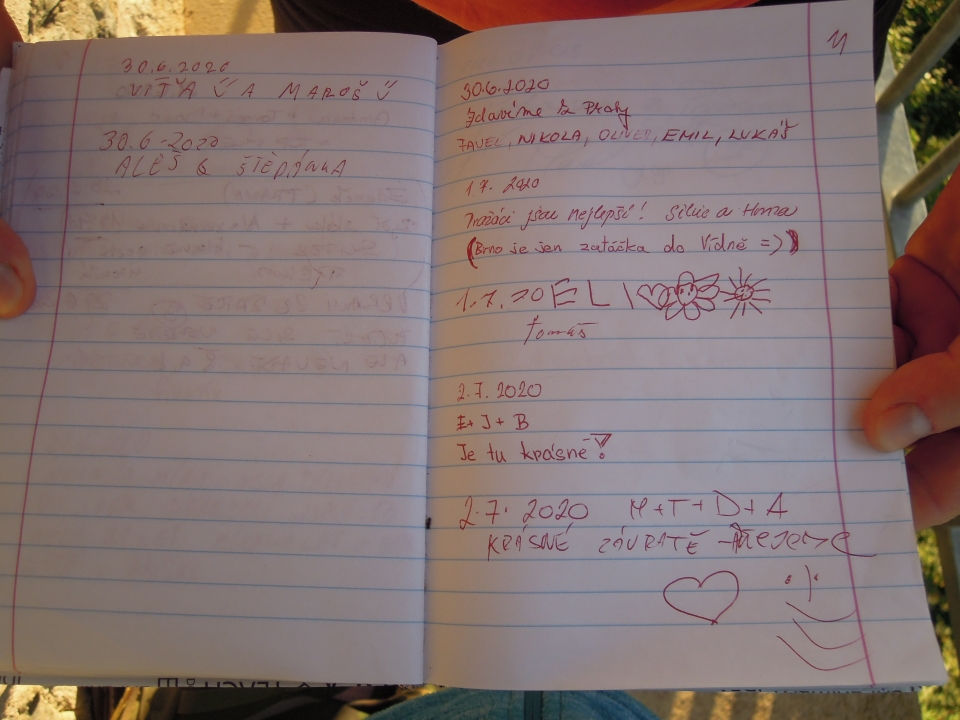 30.6.2020
VÍŤA A MAROŠ
30.6.2020
ALEŠ & ŠTĚPÁNKA
30.6.2020
Zdavíme z Prahy
PAVEL, NIKOLA, OLIVER, EMIL, LUKÁŠ
1.7. 2020
Pražáci jsou nejlepší! Silvie a Honza
(Brno je jen zatáčka do Vídně =))
1.7.20 ELI
Tomáš
2.7.2020
E+J+B
Je tu krásně!
2.7.2020 M+T+D+A
KRÁSNÉ ZÁVRATĚ